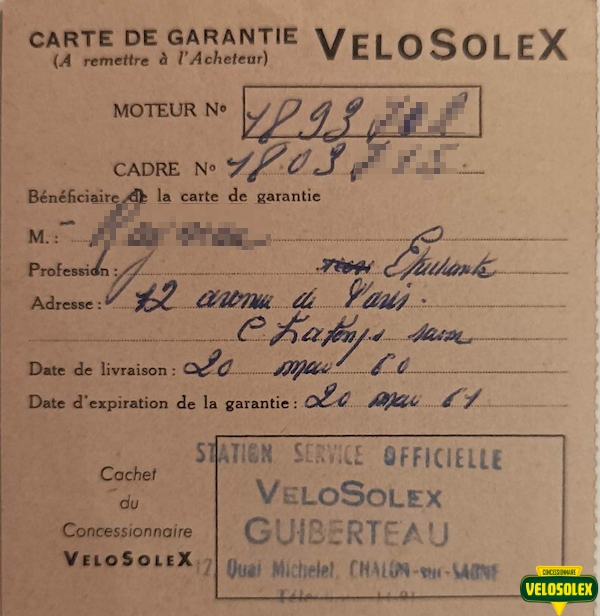 CARTE DE GARANTIE VELOSOLEX
(A remettre à l'Acheteur)
MOTEUR No 1893
CADRE No 1803
Bénéficiaire de la carte de garantie
M. :
Profession : Etudiante
Adresse : 12 avenue de Paris.
saone
Date de livraison : 20 mai 60
Date d'expiration de la garantie : 20 mai 61
STATION SERVICE OFFICIELLE
VELOSOLEX
GUIBERTEAU
Quai Michelet, CHALON-sur-SAONE
Cachet
du
Concessionnaire
VELOSOLEX
CONCESSIONNAIRE
VELOSOLEX